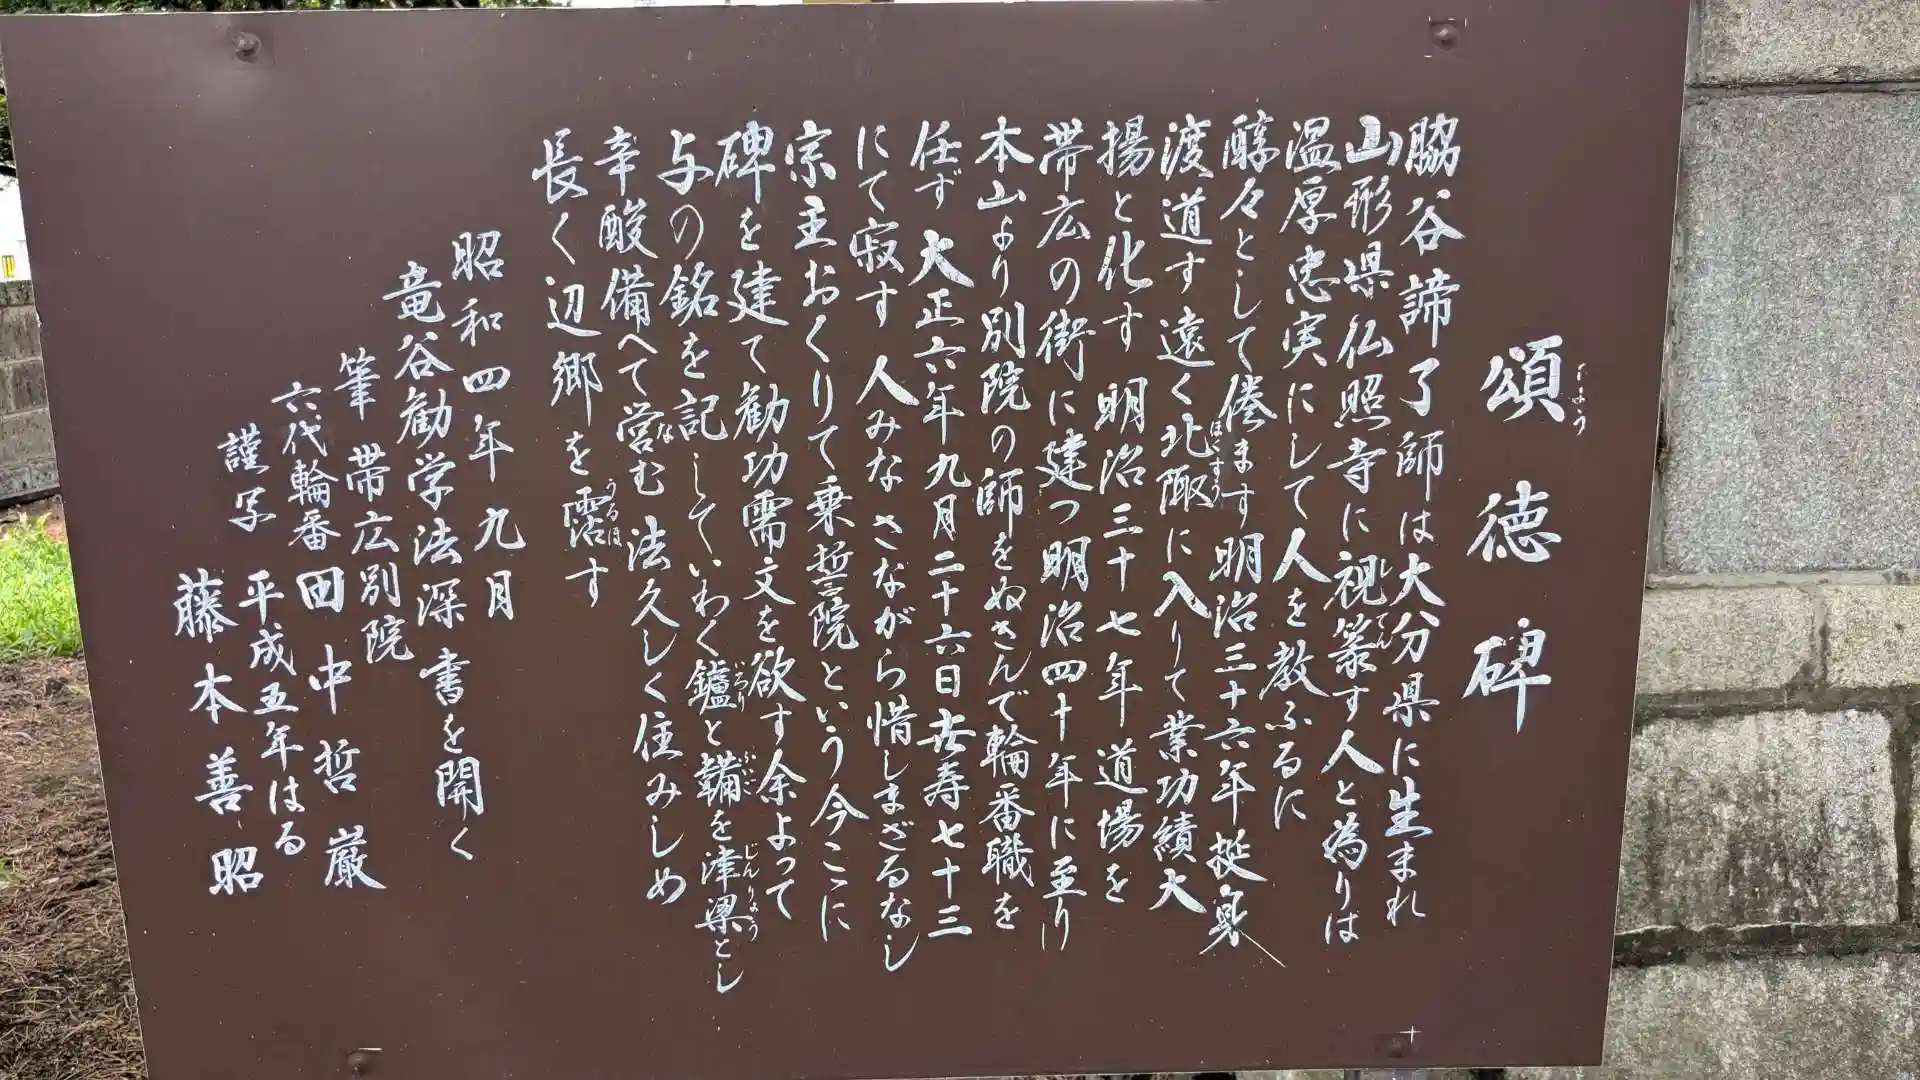 頌徳碑
脇谷諦了師は大分県に生まれ
山形県仏照寺に視篆す人と為りは
温厚忠実にして人を教ふるに
醇々として倦ます明治三十六年挺身
渡道す遠く北陬に入りて業功績大
揚と化す明治三十七年道場を
帯広の街に建つ明治四十年に至り
本山より別院の師をぬきんで輪番職を
任ず大正六年九月二十六日世寿七十三
にて寂す人みなさながら惜しまざるなし
宗主おくりて乗誓院という今ここに
碑を建て勧功需文を欲す余よって
与の銘を記していわく鑪と鞴を津梁とし
辛酸備へて営む法久しく住みしめ
長く辺郷を霑す
昭和四年九月
竜谷勧学法深書を開く
筆帯広別院
六代輪番田中哲厳
謹写平成五年はる
藤本善昭